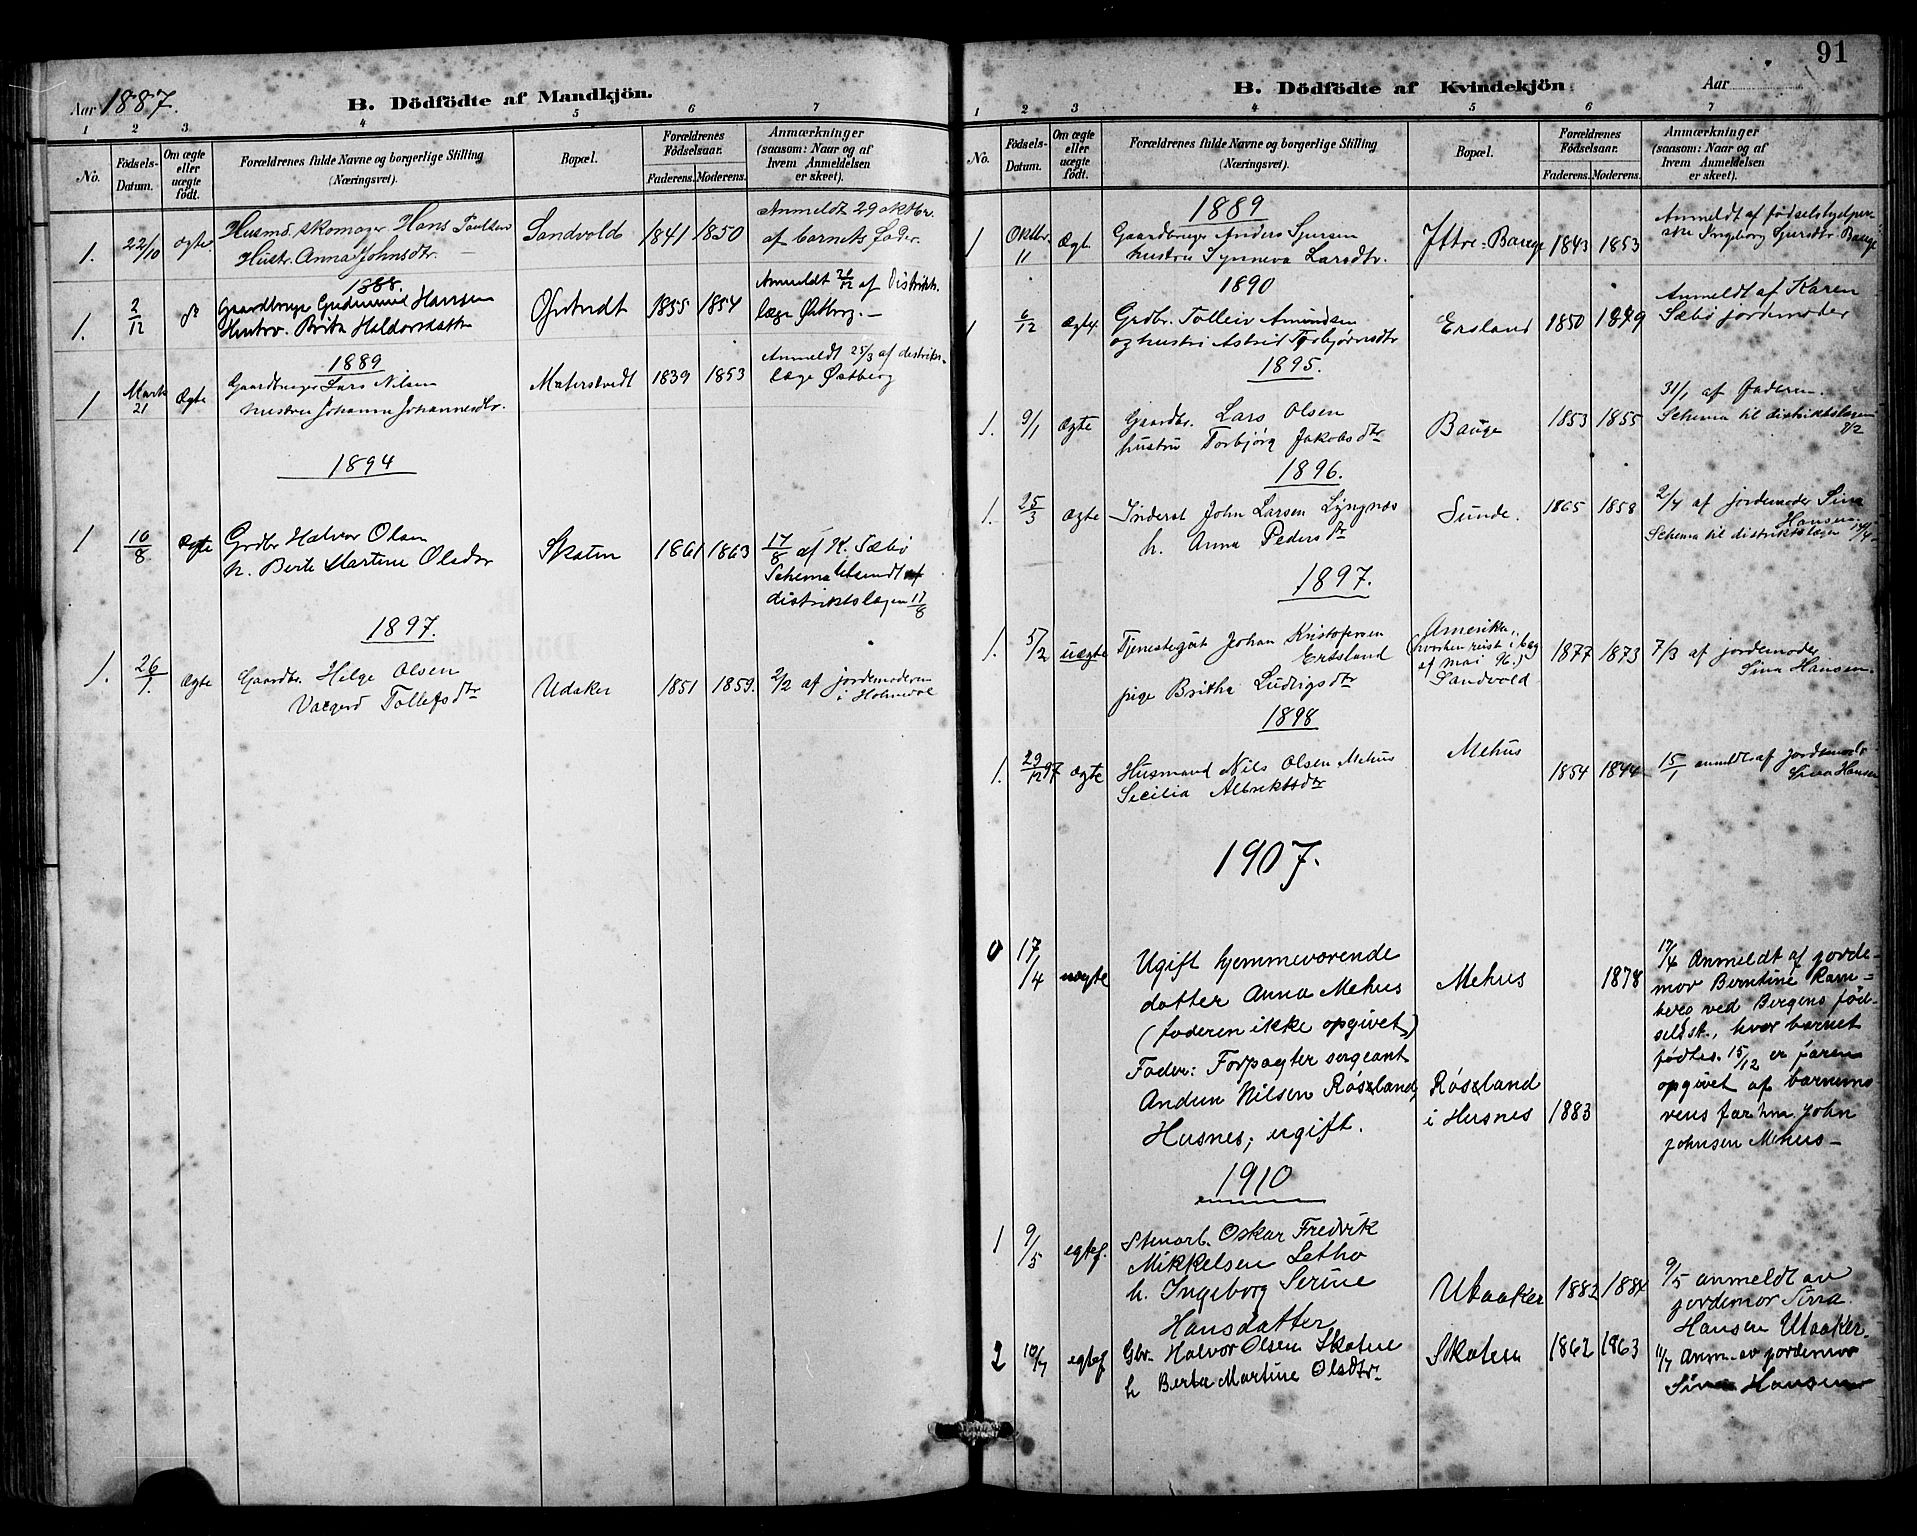 Aar 1887.
B. Dödfödte af Mandkjön.
1 2 3 4 5 6 7
No.
Födsels-Datum.
Om ægte eller uægte födt.
Forældrenes fulde Navne og borgerlige Stilling (Næringsvei).
Bopæl.
Forældrenes Födselsaar.
Faderens. Moderens.
Anmærkninger (saasom: Naar og af hvem Anmeldelsen er skeet).
1. 22/10 ægte Husmd. skomager Hans Paulsen Sandvold 1841 1850 Anmeldt 29 oktbr.
Hustr. Anna Johnsdtr. af barnets fader.
1888.
1. 2/12 Gaardbruger Gudmund Hansen 1855 1854 Anmeldt af Distrikts-
Hustru. Brita Haldorsdatter læge Østberg.—
1889
1 Marts 21 Ægte Gaardbruger Lars Nilsen Materstvedt 1839 1853 Anmeldt 25/3 af distrikts-
hustru Johanna Johannesdtr. læge Østberg
1894
1 10/8 ægte Grdbr Halvor Olsen Skaten 1861 1863 17/8 af K. Sæbø
h. Berte Martine Olsdtr Schema tilsendt
distriktslægen 17/8
1897.
1. 26/1. ægte Gaardbr. Helge Olsen Udaker 1851 1859. 2/2 af jordemoderen
Valgerd Tollefsdtr i Holmedal
91
B. Dödfödte af Kvindekjön
Aar
1 2 3 4 5 6 7
No.
Födsels-Datum.
Om ægte eller uægte födt.
Forældrenes fulde Navne og borgerlige Stilling (Næringsvei).
Bopæl.
Forældrenes Födselsaar.
Faderens. Moderens.
Anmærkninger (saasom: Naar og af hvem Anmeldelsen er skeet).
1889
1 Oktbr. 11 Ægte Gaardbruger Anders Sjursen Ittre-Bauge 1843 1853 Anmeldt af fødselshjelper-
hustru Synneva Larsdtr. ske Ingeborg Sjursdtr. Bauge
1890
1 6/12 Ægte. Grdbr. Tolleiv Amundsen Ersland 1850 1849 Anmeldt af Karen
og hustru Astrid Torbjørnsdtr Sæbø jordemoder
1895.
1. 9/1 ægte Gaardbr. Lars Olsen Bauge 1853 1855 31/1 af Faderen.
hustru Torbjørg Jakobsdtr Schema til distriktslægen
9/2
1896.
1. 25/3 ægte Inderst John Larsen Lyngnes Sunde. 1865 1858 2/4 af jordemoder Sina
h. Anna Pedersdtr Hansen.
Schema til distriktslægen
1897.
1. 5/2 uægte Tjenestegut Johan Kristofersen Amerika,
Ersland (hvorhen reist i beg. 1877 1873 7/3 af jordemoder
af mai 96.) Sina Hansen.
pige Britha Ludvigsdtr Sandvold
1898
1. 29/12 97 ægte Husmand Nils Olsen Mehus Mehus 1854 1844 15/1 anmeldt af Jordemoder
Secilia Albriktsdtr Sina Hansen
1907.
0 17/4 uægte Ugift hjemmeværende Mehus 1878 17/4 Anmeldt af jorde-
datter Anna Mehus mor Berntine Ram-
(faderen ikke opgivet) ved Bergens fød-
Fader: Forpagter sergeant selsst., hvor barnet
Andun Nilsen Røsland, Røsland 1883 fødtes. 15/12 er faren
Husnes; ugift. i Husnes opgivet af barnemo-
rens far hm. John
Johnsen Mehus—
1910
1 9/5 egtef. Stenarb. Oskar Fredrik
Mikkelsen Letho
h. Ingeborg Serine Utaaker 1882 1884 9/5 anmeldt av
Hansdatter jordemor Sina
Hansen Utaaker.
2 10/7 egtef Gbr. Halvor Olsen Skaten Skaten 1862 1863 11/7 Anm. av jordemor
h Berta Martine Olsdtr. Sina Hansen